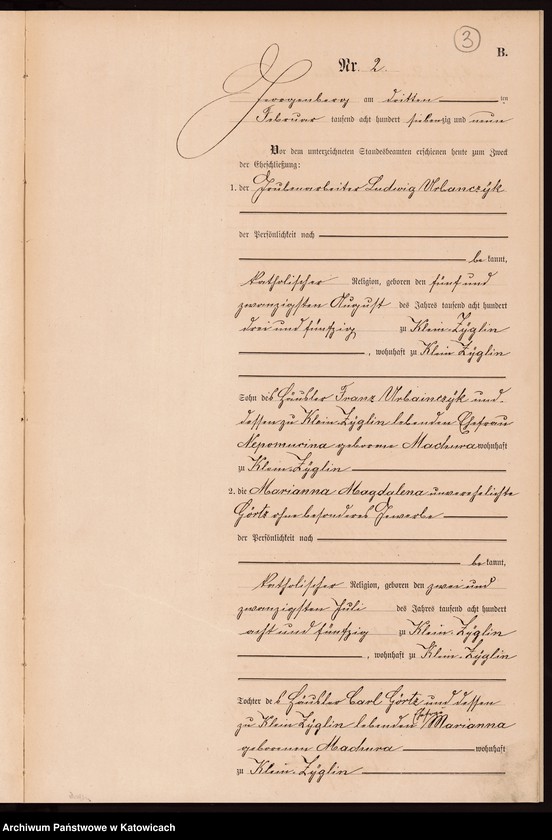 3
B.
Nr. 2.
Georgenberg am dritten ten
Februar tausend acht hundert siebenzig und neun
Vor dem unterzeichneten Standesbeamten erschienen heute zum Zweck
der Eheschließung:
1. der Grubenarbeiter Ludwig Urbanczÿk
der Persönlichkeit nach
be kannt,
katholischer Religion, geboren den fünf und
zwanzigsten August des Jahres tausend acht hundert
drei und fünfzig zu Klein-Zÿglin
, wohnhaft zu Klein-Zÿglin
Sohn des Häusler Franz Urbainczÿk und
dessen zu Klein-Zÿglin lebenden Ehefrau
Nepomucina geborene Machura wohnhaft
zu Klein-Zÿglin
2. die Marianna Magdalena unverehelichte
Görtz ohne besonderes Gewerbe
der Persönlichkeit nach
be kannt,
katholischer Religion, geboren den zwei und
zwanzigsten Juli des Jahres tausend acht hundert
acht und fünfzig zu Klein-Zÿglin
, wohnhaft zu Klein-Zÿglin
Tochter des Häusler Carl Görtz und dessen
zu Klein-Zÿglin lebenden Marianna
geborenen Machura wohnhaft
zu Klein-Zÿglin
Archiwum Państwowe w Katowicach